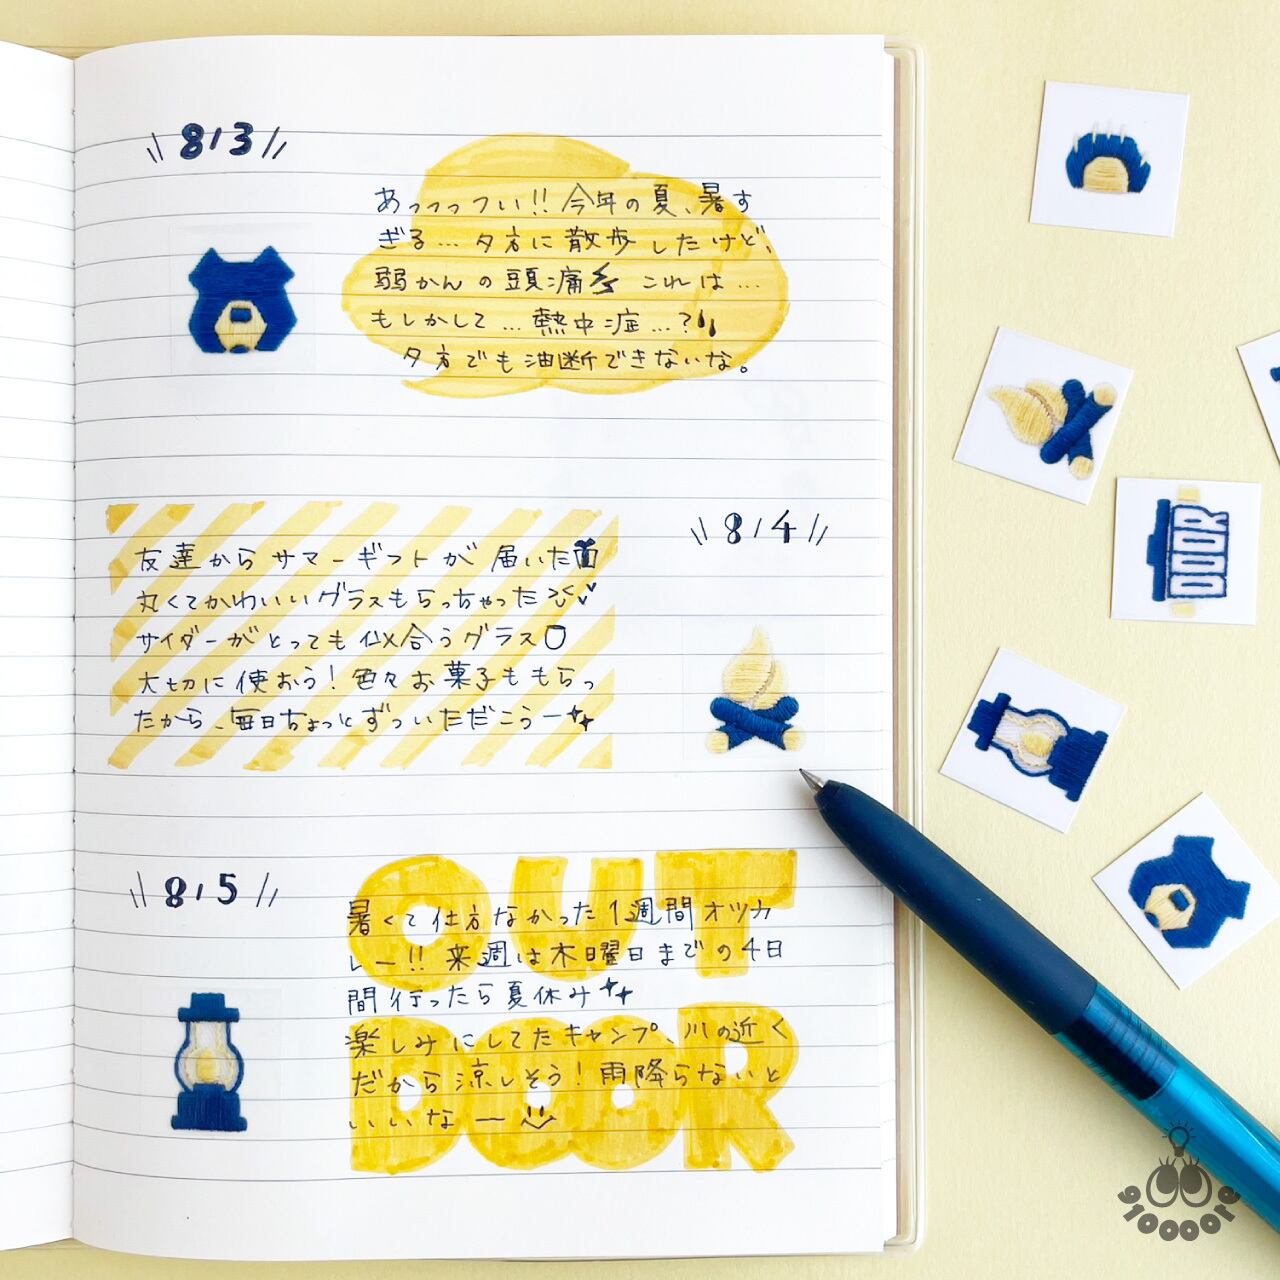 8/3
あっっっつい!! 今年の夏、暑す
ぎる… 夕方に散歩したけど、
弱かんの頭痛 これは…
もしかして…熱中症…?
夕方でも油断できないな。
友達からサマーギフトが届いた
丸くてかわいいグラスもらっちゃった
サイダーがとっても似合うグラス
大切に使おう! 色々お菓子ももらっ
たから、毎日ちょっとずついただこうー
8/4
8/5
OUT
DOOR
暑くて仕方なかった1週間オツカ
レー!! 来週は木曜日までの4日
間行ったら夏休み
楽しみにしてたキャンプ、川の近く
だから涼しそう! 雨降らないと
いいなー
DOOR
groooore